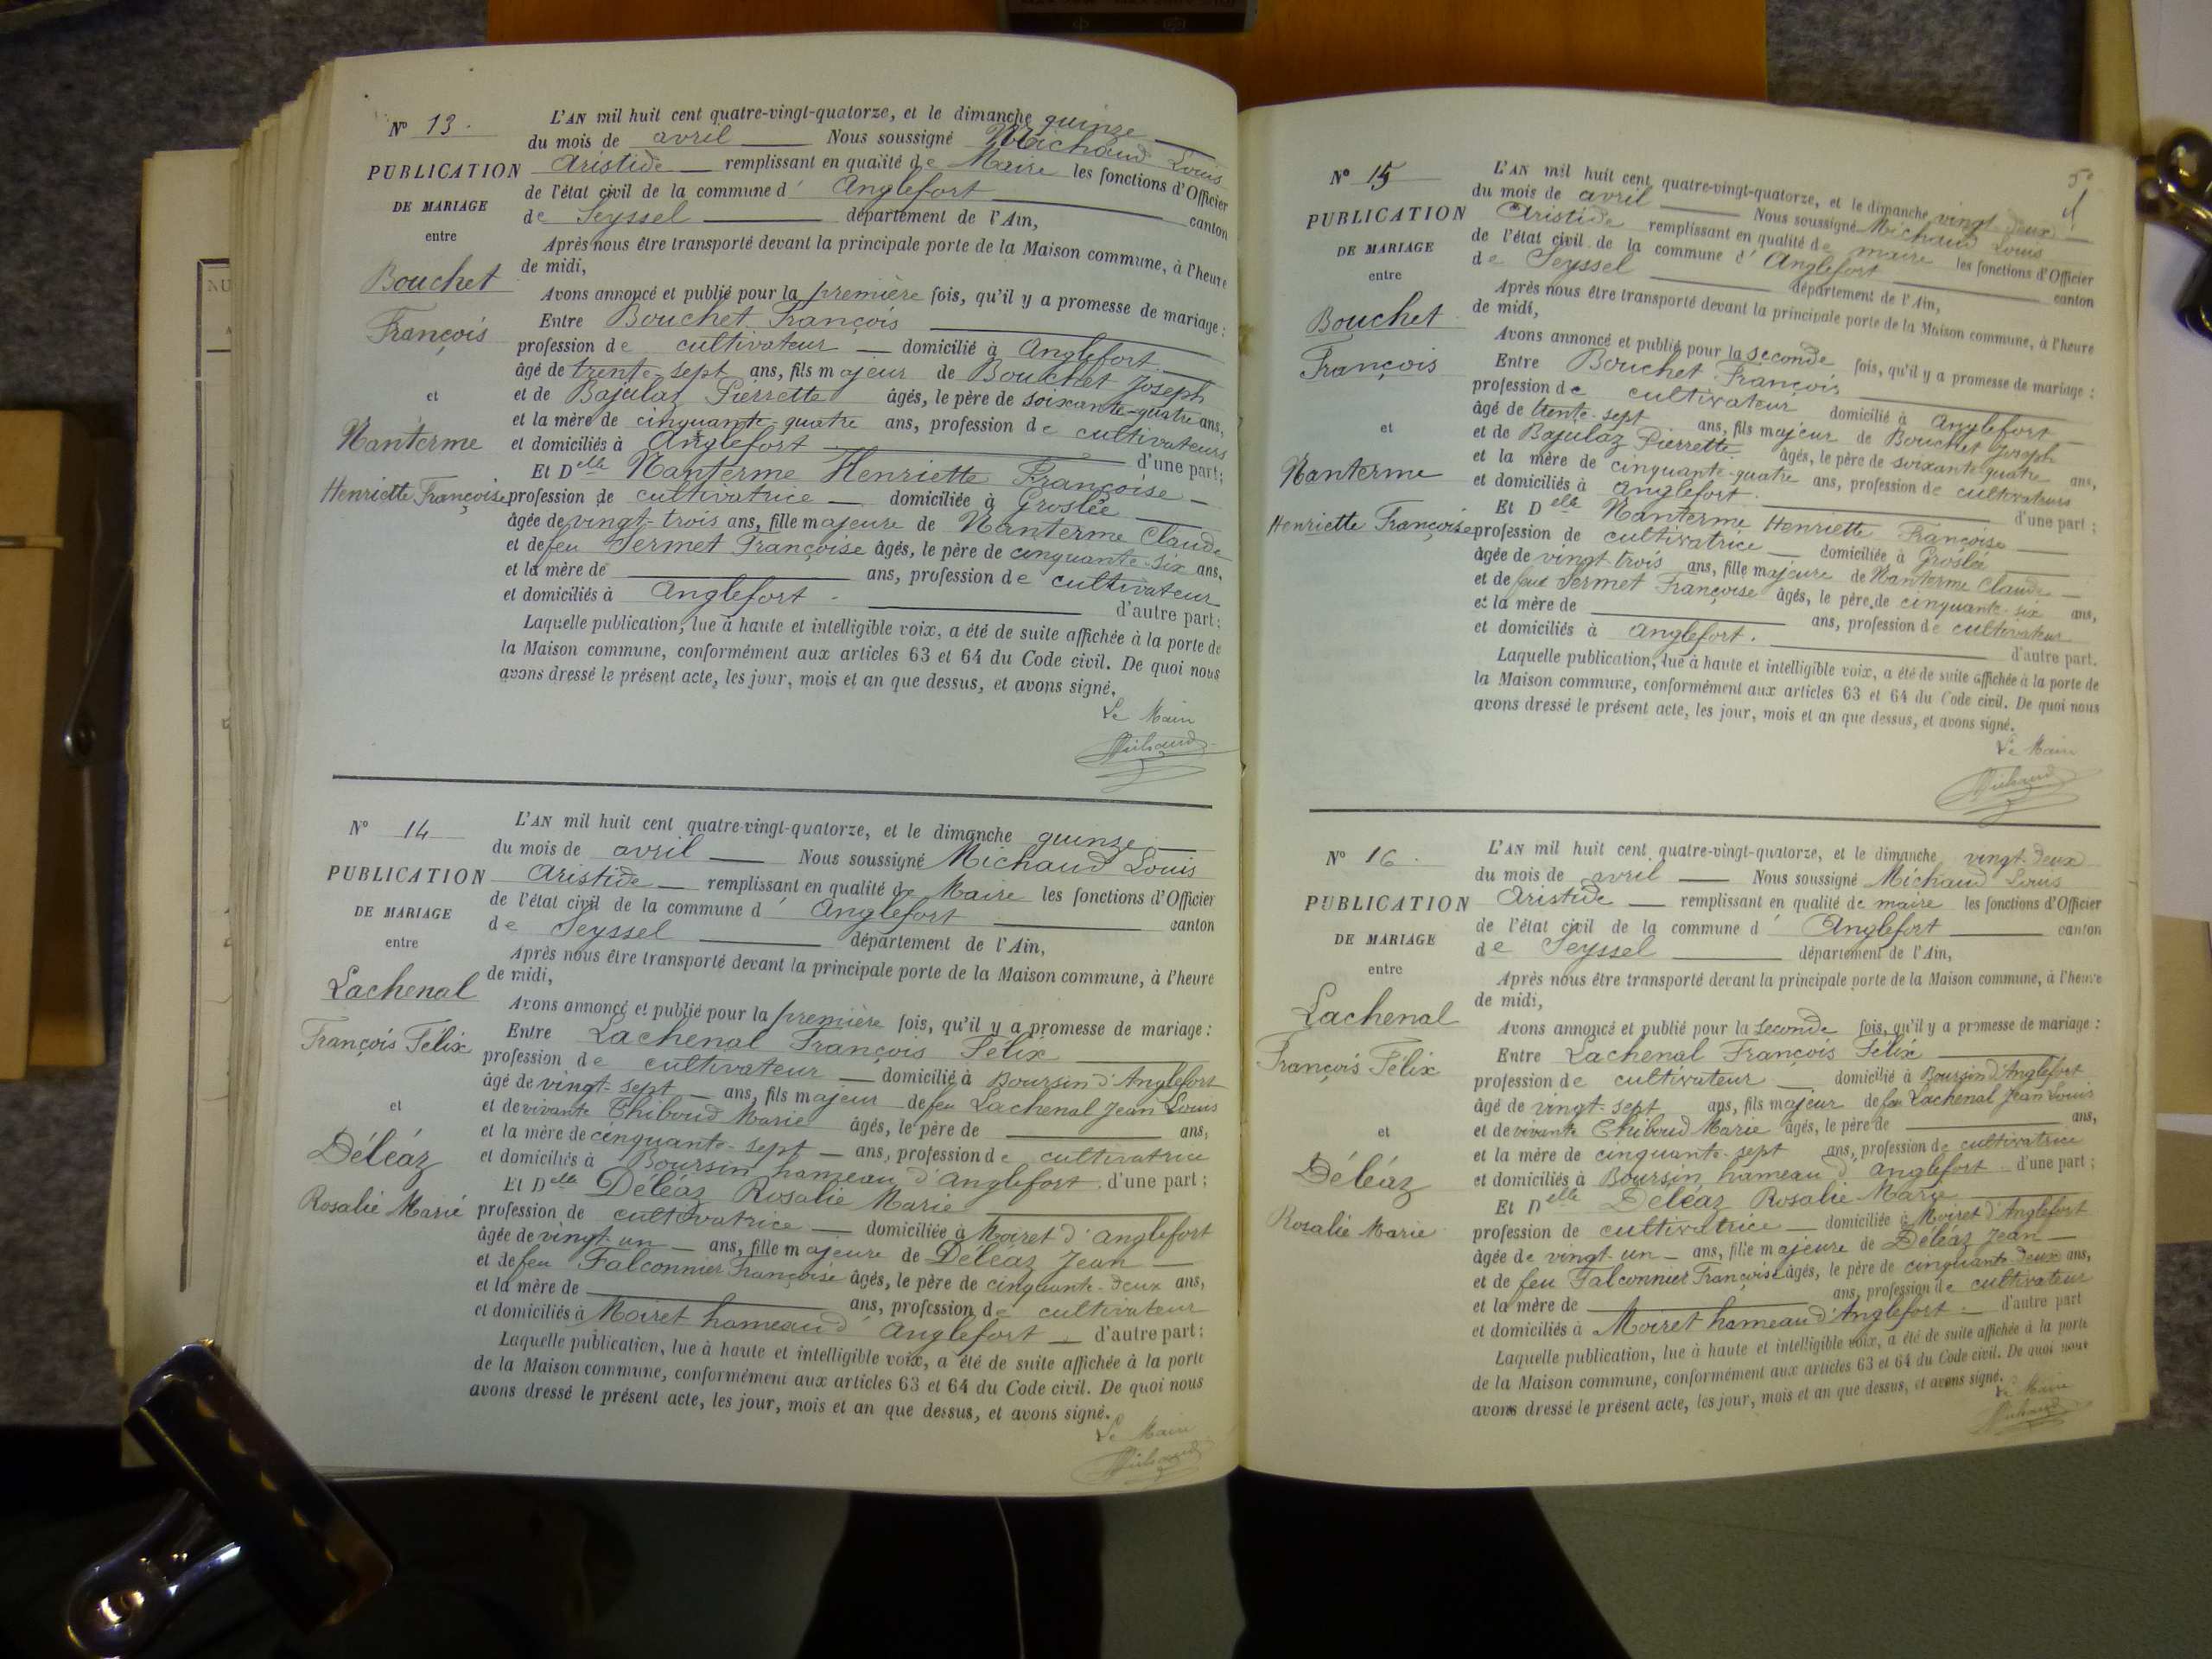 N° 13.
PUBLICATION
DE MARIAGE
entre
Bouchet
François
et
Nanterme
Henriette Françoise
L'AN mil huit cent quatre-vingt-quatorze, et le dimanche quinze
du mois de avril Nous soussigné Michaud Louis
Aristide remplissant en qualité de Maire les fonctions d'Officier
de l'état civil de la commune d' Anglefort canton
de Seyssel département de l'Ain,
Après nous être transporté devant la principale porte de la Maison commune, à l'heure
de midi,
Avons annoncé et publié pour la première fois, qu'il y a promesse de mariage :
Entre Bouchet François
profession de cultivateur domicilié à Anglefort
âgé de trente-sept ans, fils majeur de Bouchet Joseph
et de Bajulaz Pierrette âgés, le père de soixante-quatre ans,
et la mère de cinquante-quatre ans, profession de cultivateurs
et domiciliés à Anglefort d'une part;
Et Delle Nanterme Henriette Françoise
profession de cultivatrice domiciliée à Groslée
âgée de vingt-trois ans, fille majeure de Nanterme Claude
et de feu Sermet Françoise âgés, le père de cinquante-six ans,
et la mère de ans, profession de cultivateur
et domiciliés à Anglefort d'autre part;
Laquelle publication, lue à haute et intelligible voix, a été de suite affichée à la porte de
la Maison commune, conformément aux articles 63 et 64 du Code civil. De quoi nous
avons dressé le présent acte, les jour, mois et an que dessus, et avons signé.
Le Maire
Michaud
N° 14
PUBLICATION
DE MARIAGE
entre
Lachenal
François Félix
et
Déléaz
Rosalie Marie
L'AN mil huit cent quatre-vingt-quatorze, et le dimanche quinze
du mois de avril Nous soussigné Michaud Louis
Aristide remplissant en qualité de Maire les fonctions d'Officier
de l'état civil de la commune d' Anglefort canton
de Seyssel département de l'Ain,
Après nous être transporté devant la principale porte de la Maison commune, à l'heure
de midi,
Avons annoncé et publié pour la première fois, qu'il y a promesse de mariage :
Entre Lachenal François Félix
profession de cultivateur domicilié à Boursin d'Anglefort
âgé de vingt-sept ans, fils majeur de feu Lachenal Jean Louis
et de vivante Thiboud Marie âgés, le père de ans,
et la mère de cinquante-sept ans, profession de cultivatrice
et domiciliés à Boursin hameau d'Anglefort d'une part ;
Et Delle Déléaz Rosalie Marie
profession de cultivatrice domiciliée à Moiret d'Anglefort
âgée de vingt-un ans, fille majeure de Déléaz Jean
et de feu Falconnier Françoise âgés, le père de cinquante-deux ans,
et la mère de ans, profession de cultivateur
et domiciliés à Moiret hameau d'Anglefort d'autre part ;
Laquelle publication, lue à haute et intelligible voix, a été de suite affichée à la porte
de la Maison commune, conformément aux articles 63 et 64 du Code civil. De quoi nous
avons dressé le présent acte, les jour, mois et an que dessus, et avons signé.
Le Maire
Michaud
N° 15
PUBLICATION
DE MARIAGE
entre
Bouchet
François
et
Nanterme
Henriette Françoise
L'AN mil huit cent quatre-vingt-quatorze, et le dimanche vingt-deux
du mois de avril Nous soussigné Michaud Louis
Aristide remplissant en qualité de maire les fonctions d'Officier
de l'état civil de la commune d' Anglefort canton
de Seyssel département de l'Ain,
Après nous être transporté devant la principale porte de la Maison commune, à l'heure
de midi,
Avons annoncé et publié pour la seconde fois, qu'il y a promesse de mariage :
Entre Bouchet François
profession de cultivateur domicilié à Anglefort
âgé de trente-sept ans, fils majeur de Bouchet Joseph
et de Bajulaz Pierrette âgés, le père de soixante-quatre ans,
et la mère de cinquante-quatre ans, profession de cultivateurs
et domiciliés à Anglefort. d'une part ;
Et Delle Nanterme Henriette Françoise
profession de cultivatrice domiciliée à Groslée
âgée de vingt-trois ans, fille majeure de Nanterme Claude
et de feue Sermet Françoise âgés, le père de cinquante-six ans,
et la mère de ans, profession de cultivateur
et domiciliés à Anglefort. d'autre part.
Laquelle publication, lue à haute et intelligible voix, a été de suite affichée à la porte de
la Maison commune, conformément aux articles 63 et 64 du Code civil. De quoi nous
avons dressé le présent acte, les jour, mois et an que dessus, et avons signé.
Le Maire
Michaud
N° 16.
PUBLICATION
DE MARIAGE
entre
Lachenal
François Félix
et
Déléaz
Rosalie Marie
L'AN mil huit cent quatre-vingt-quatorze, et le dimanche vingt-deux
du mois de avril Nous soussigné Michaud Louis
Aristide remplissant en qualité de maire les fonctions d'Officier
de l'état civil de la commune d' Anglefort canton
de Seyssel département de l'Ain,
Après nous être transporté devant la principale porte de la Maison commune, à l'heure
de midi,
Avons annoncé et publié pour la seconde fois, qu'il y a promesse de mariage :
Entre Lachenal François Félix
profession de cultivateur domicilié à Boursin d'Anglefort
âgé de vingt-sept ans, fils majeur de feu Lachenal Jean Louis
et de vivante Thiboud Marie âgés, le père de ans,
et la mère de cinquante-sept ans, profession de cultivatrice
et domiciliés à Boursin hameau d'Anglefort d'une part ;
Et Delle Déléaz Rosalie Marie
profession de cultivatrice domiciliée à Moiret d'Anglefort
âgée de vingt-un ans, fille majeure de Déléaz Jean
et de feu Falconnier Françoise âgés, le père de cinquante-deux ans,
et la mère de ans, profession de cultivateur
et domiciliés à Moiret hameau d'Anglefort d'autre part
Laquelle publication, lue à haute et intelligible voix, a été de suite affichée à la porte
de la Maison commune, conformément aux articles 63 et 64 du Code civil. De quoi nous
avons dressé le présent acte, les jour, mois et an que dessus, et avons signé.
Le Maire
Michaud